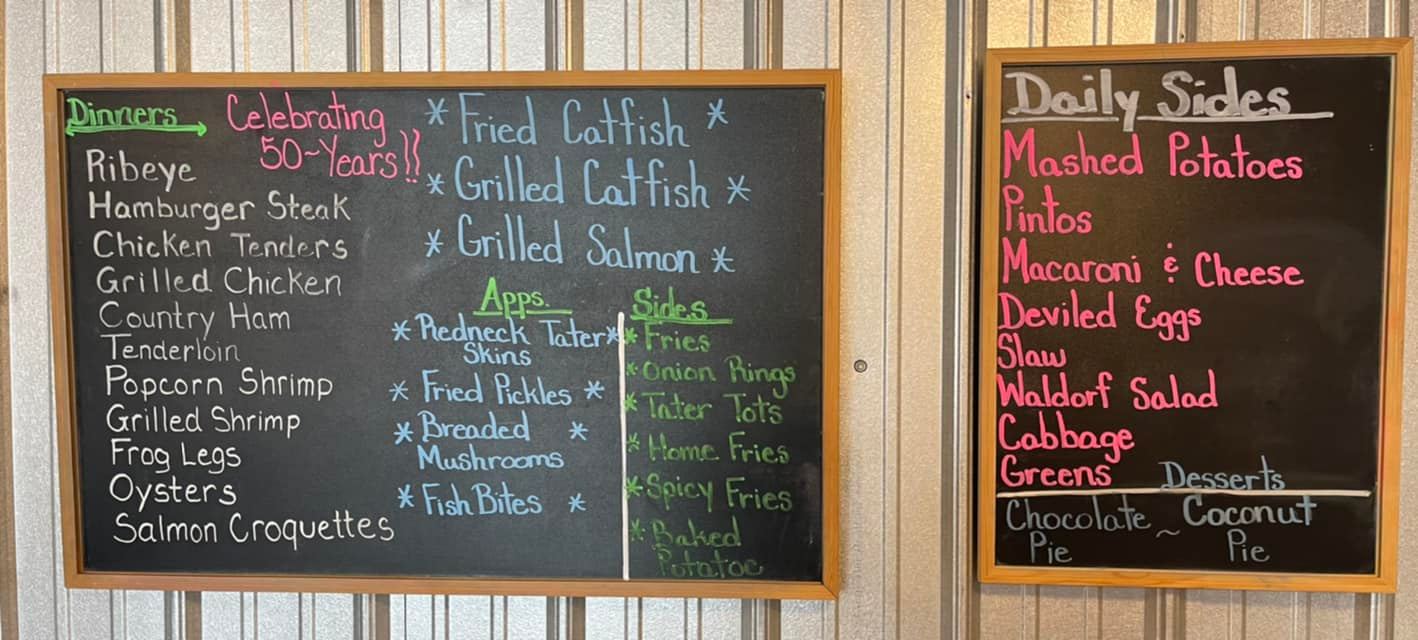 Dinners
Celebrating
50~Years!!
Ribeye
Hamburger Steak
Chicken Tenders
Grilled Chicken
Country Ham
Tenderloin
Popcorn Shrimp
Grilled Shrimp
Frog Legs
Oysters
Salmon Croquettes
* Fried Catfish *
* Grilled Catfish *
* Grilled Salmon *
Apps.
* Redneck Tater *
Skins
* Fried Pickles *
* Breaded *
Mushrooms
* Fish Bites *
Sides
* Fries
* Onion Rings
* Tater Tots
* Home Fries
* Spicy Fries
* Baked
Potatoe
Daily Sides
Mashed Potatoes
Pintos
Macaroni & Cheese
Deviled Eggs
Slaw
Waldorf Salad
Cabbage
Greens
Desserts
Chocolate ~ Coconut
Pie Pie